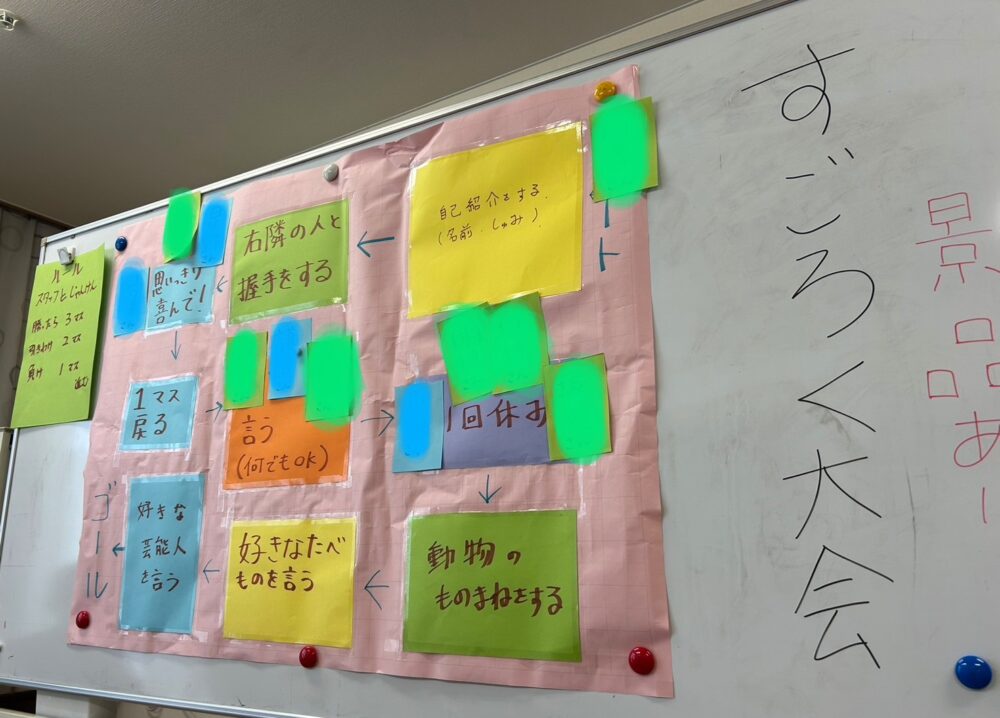 すごろく大会
景品あり
ルール
スタッフとじゃんけん
勝ったら 3マス
引きわけ 2マス
負け 1マス
進む
ト
自己紹介をする。
(名前・しゅみ)
右隣の人と
握手をする
思いっきり
喜んで!
1マス
戻る
言う
(何でもOK)
1回休み
動物の
ものまねをする
好きなたべ
ものを言う
好きな
芸能人
を言う
ゴール